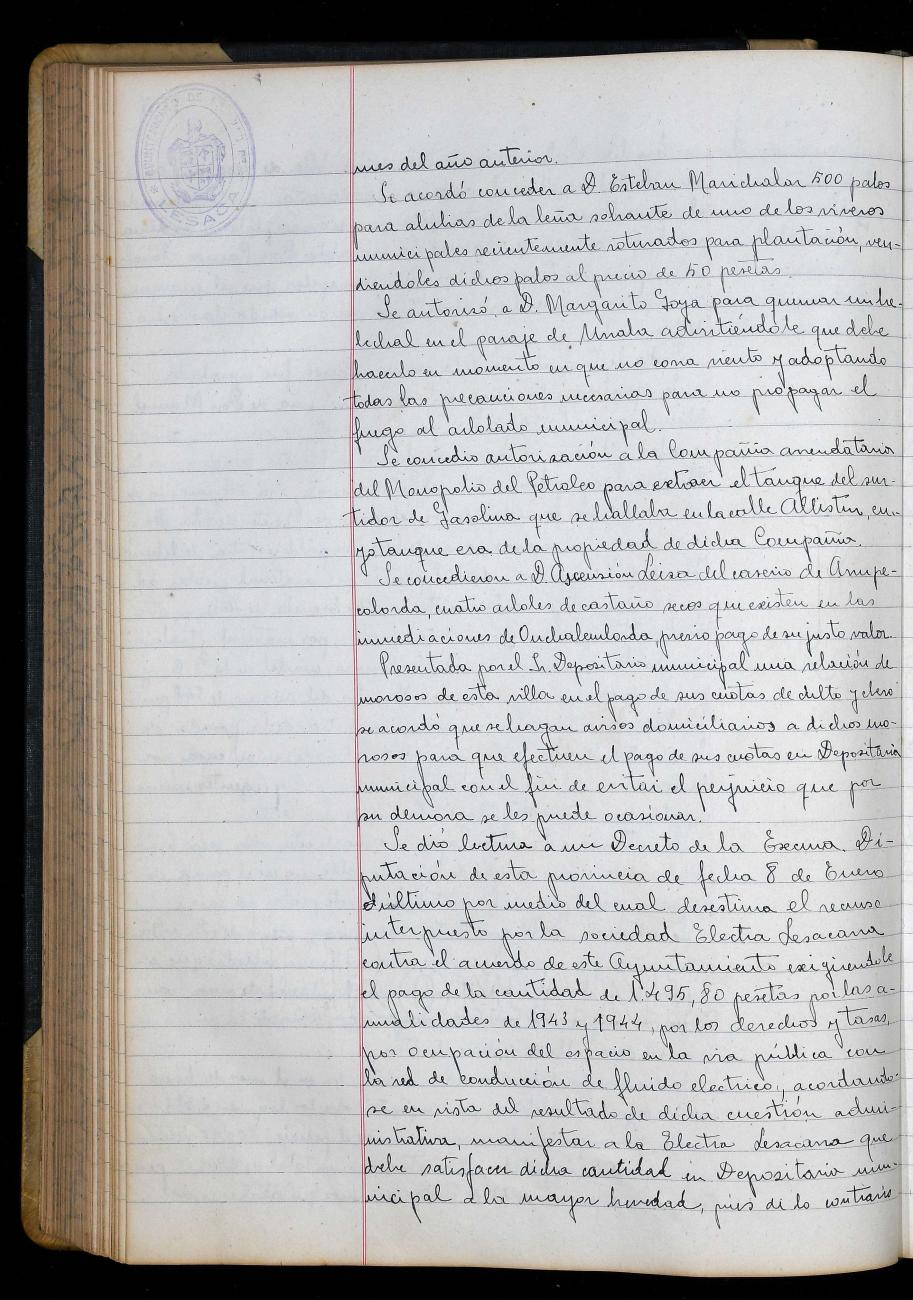 AYUNTAMIENTO DE
LESACA
mes del año anterior.
Se acordó conceder a D. Esteban Marichalar 500 palos
para alubias de la leña sobrante de uno de los viveros
municipales recientemente roturados para plantación, ven-
diendoles dichos palos al precio de 50 pesetas.
Se autorizó, a D. Margarito Goya para quemar un he-
lechal en el paraje de Unala advirtiéndole que debe
hacerlo en momento en que no corra viento y adoptando
todas las precauciones necesarias para no propagar el
fuego al arbolado municipal.
Se concedio autorización a la Compañia arrendataria
del Monopolio del Petroleo para extraer el tanque del sur-
tidor de Gasolina que se hallaba en la calle Albistur, cu-
yo tanque era de la propiedad de dicha Compañia.
Se concedieron a D. Ascensión Leiza del caserio de Arrupe-
coborda, cuatro arboles de castaño secos que existen en las
inmediaciones de Onchalenborda, previo pago de su justo valor.
Presentada por el Sr. Depositario municipal una relación de
morosos de esta villa en el pago de sus cuotas de culto y clero
se acordó que se hagan avisos domiciliarios a dichos mo-
rosos para que efectuen el pago de sus cuotas en Depositaria
municipal con el fin de evitar el perjuicio que por
su demora se les puede ocasionar.
Se dió lectura a un Decreto de la Excma. Di-
putación de esta provincia de fecha 8 de Enero
último por medio del cual desestima el recurso
interpuesto por la sociedad Electra Lesacana
contra el acuerdo de este Ayuntamiento exigiendole
el pago de la cantidad de 1.495,80 pesetas por las a-
nualidades de 1943 y 1944, por los derechos y tasas,
por ocupación del espacio en la via pública con
la red de conducción de fluido electrico, acordando-
se en vista del resultado de dicha cuestión admi-
nistrativa, manifestar a la Electra Lesacana que
debe satisfacer dicha cantidad en Depositaria mu-
nicipal a la mayor brevedad, pues de lo contrario